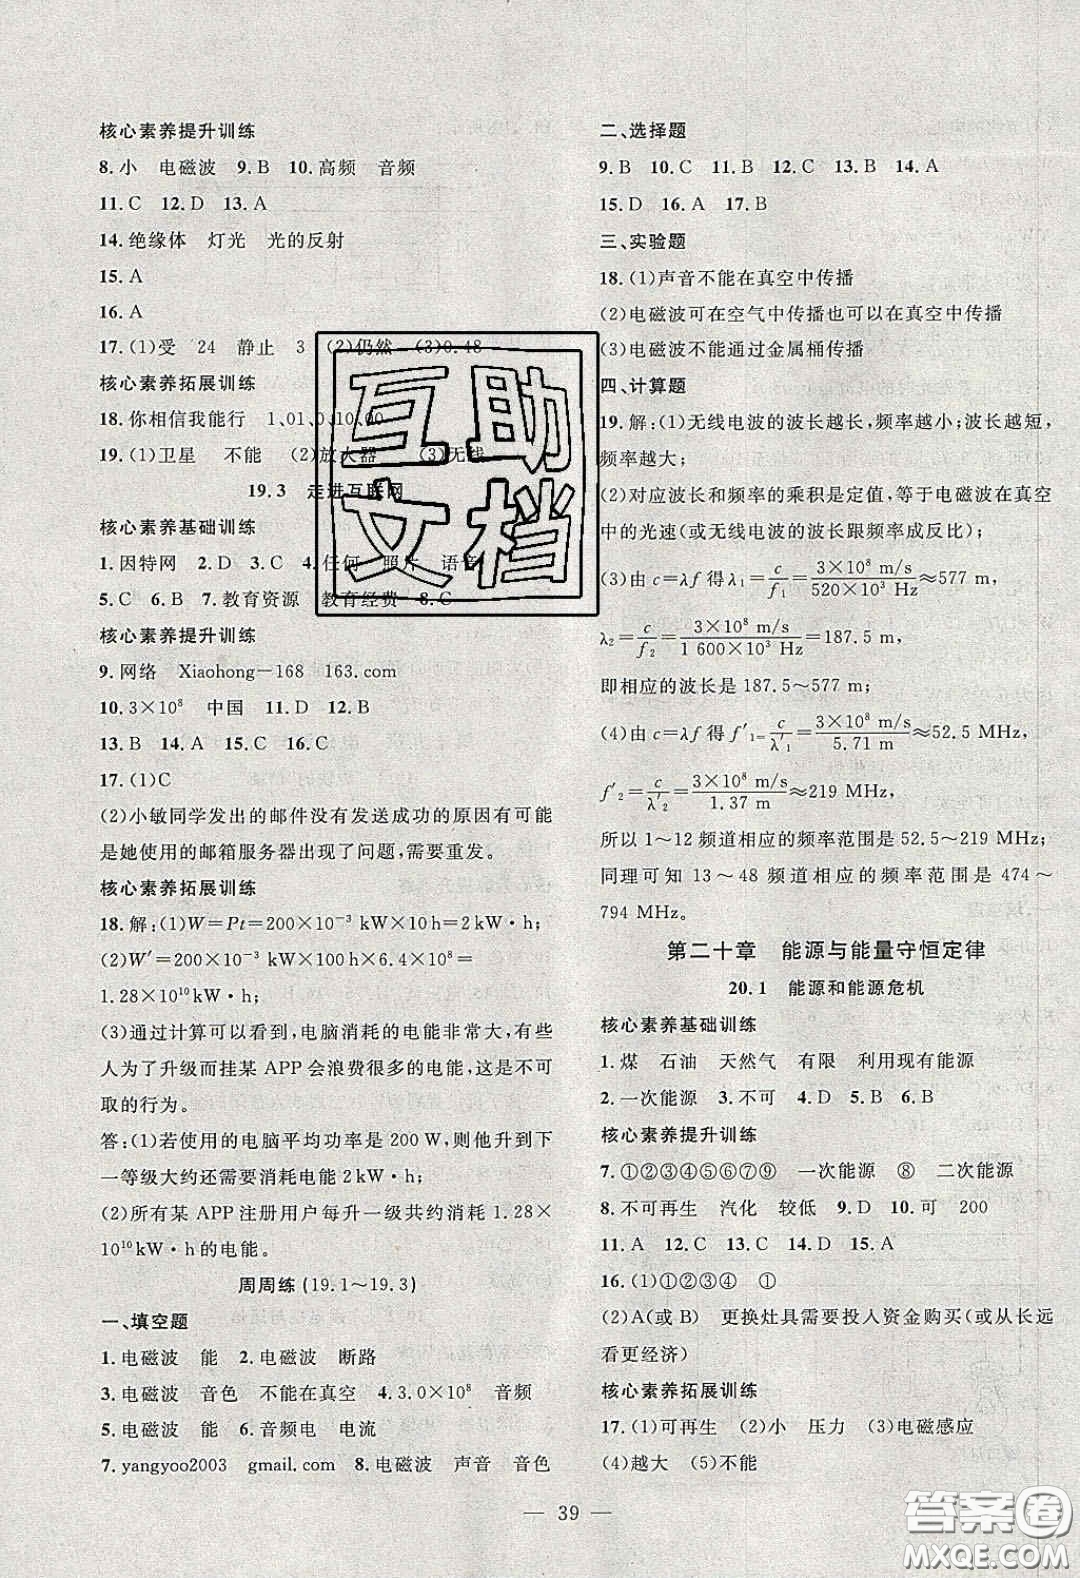 核心素养提升训练
8.小 电磁波 9.B 10.高频 音频
11.C 12.D 13.A
14.绝缘体 灯光 光的反射
15.A
16.A
17.(1)受 24 静止 3 (2)仍然 (3)0.48
核心素养拓展训练
18.你相信我能行 1、01、0、10、00
19.(1)卫星 不能 (2)放大器 (3)无线
19.3 走进互联网
核心素养基础训练
1.因特网 2.D 3.C 4.任何 照片 语音
5.C 6.B 7.教育资源 教育经费 8.C
核心素养提升训练
9.网络 Xiaohong—168 163.com
10.3×10⁸ 中国 11.D 12.B
13.B 14.A 15.C 16.C
17.(1)C
(2)小敏同学发出的邮件没有发送成功的原因有可能
是她使用的邮箱服务器出现了问题,需要重发。
核心素养拓展训练
18.解:(1)W=Pt=200×10⁻³ kW×10 h=2 kW·h;
(2)W′=200×10⁻³ kW×10 h×6.4×10⁸=
1.28×10¹⁰kW·h;
(3)通过计算可以看到,电脑消耗的电能非常大,有些
人为了升级而挂某 APP会浪费很多电能,这是不可
取的行为。
答:(1)若使用的电脑平均功率是 200 W,则他升到下
一等级大约还需要消耗电能 2 kW·h;
(2)所有某 APP 注册用户每升一级共约消耗 1.28×
10¹⁰kW·h的电能。
周周练(19.1～19.3)
一、填空题
1.电磁波 能 2.电磁波 断路
3.电磁波 音色 不能在真空 4.3.0×10⁸ 音频
5.电磁波 能 6.音频电 电流
7.yangyoo2003 gmail.com 8.电磁波 声音 音色
二、选择题
9.B 10.C 11.C 12.B 13.B 14.A
15.D 16.A 17.B
三、实验题
18.(1)声音不能在真空中传播
(2)电磁波可在空气中传播也可以在真空中传播
(3)电磁波不能通过金属桶传播
四、计算题
19.解:(1)无线电波的波长越长,频率越小;波长越短,
频率越大;
(2)对应波长和频率的乘积是定值,等于电磁波在真空
中的光速(或无线电波的波长跟频率成反比);
(3)由 c=λf 得 λ₁=c/f₁=3×10⁸ m/s/520×10³ Hz≈577 m,
λ₂=c/f₂=3×10⁸ m/s/1 600×10³ Hz=187.5 m,
即相应的波长是 187.5～577 m;
(4)由 c=λf 得 f′₁=c/λ′₁=3×10⁸ m/s/5.71 m≈52.5 MHz,
f′₂=c/λ′₂=3×10⁸ m/s/1.37 m≈219 MHz,
所以 1～12 频道相应的频率范围是 52.5～219 MHz;
同理可知 13～48 频道相应的频率范围是 474～
794 MHz。
第二十章 能源与能量守恒定律
20.1 能源和能源危机
核心素养基础训练
1.煤 石油 天然气 有限 利用现有能源
2.一次能源 3.不可 4.D 5.A 6.B
核心素养提升训练
7.①②③④⑤⑥⑦⑨ 一次能源 ⑧ 二次能源
8.不可再生 汽化 较低 9.D 10.可 200
11.A 12.C 13.C 14.D 15.A
16.(1)①②③④ ①
(2)A(或B) 更换灶具需要投入资金购买(或从长远
看更经济)
核心素养拓展训练
17.(1)可再生 (2)小 压力 (3)电磁感应
(4)越大 (5)不能
— 39 —
互助
文档
答案圈
MXQE.COM